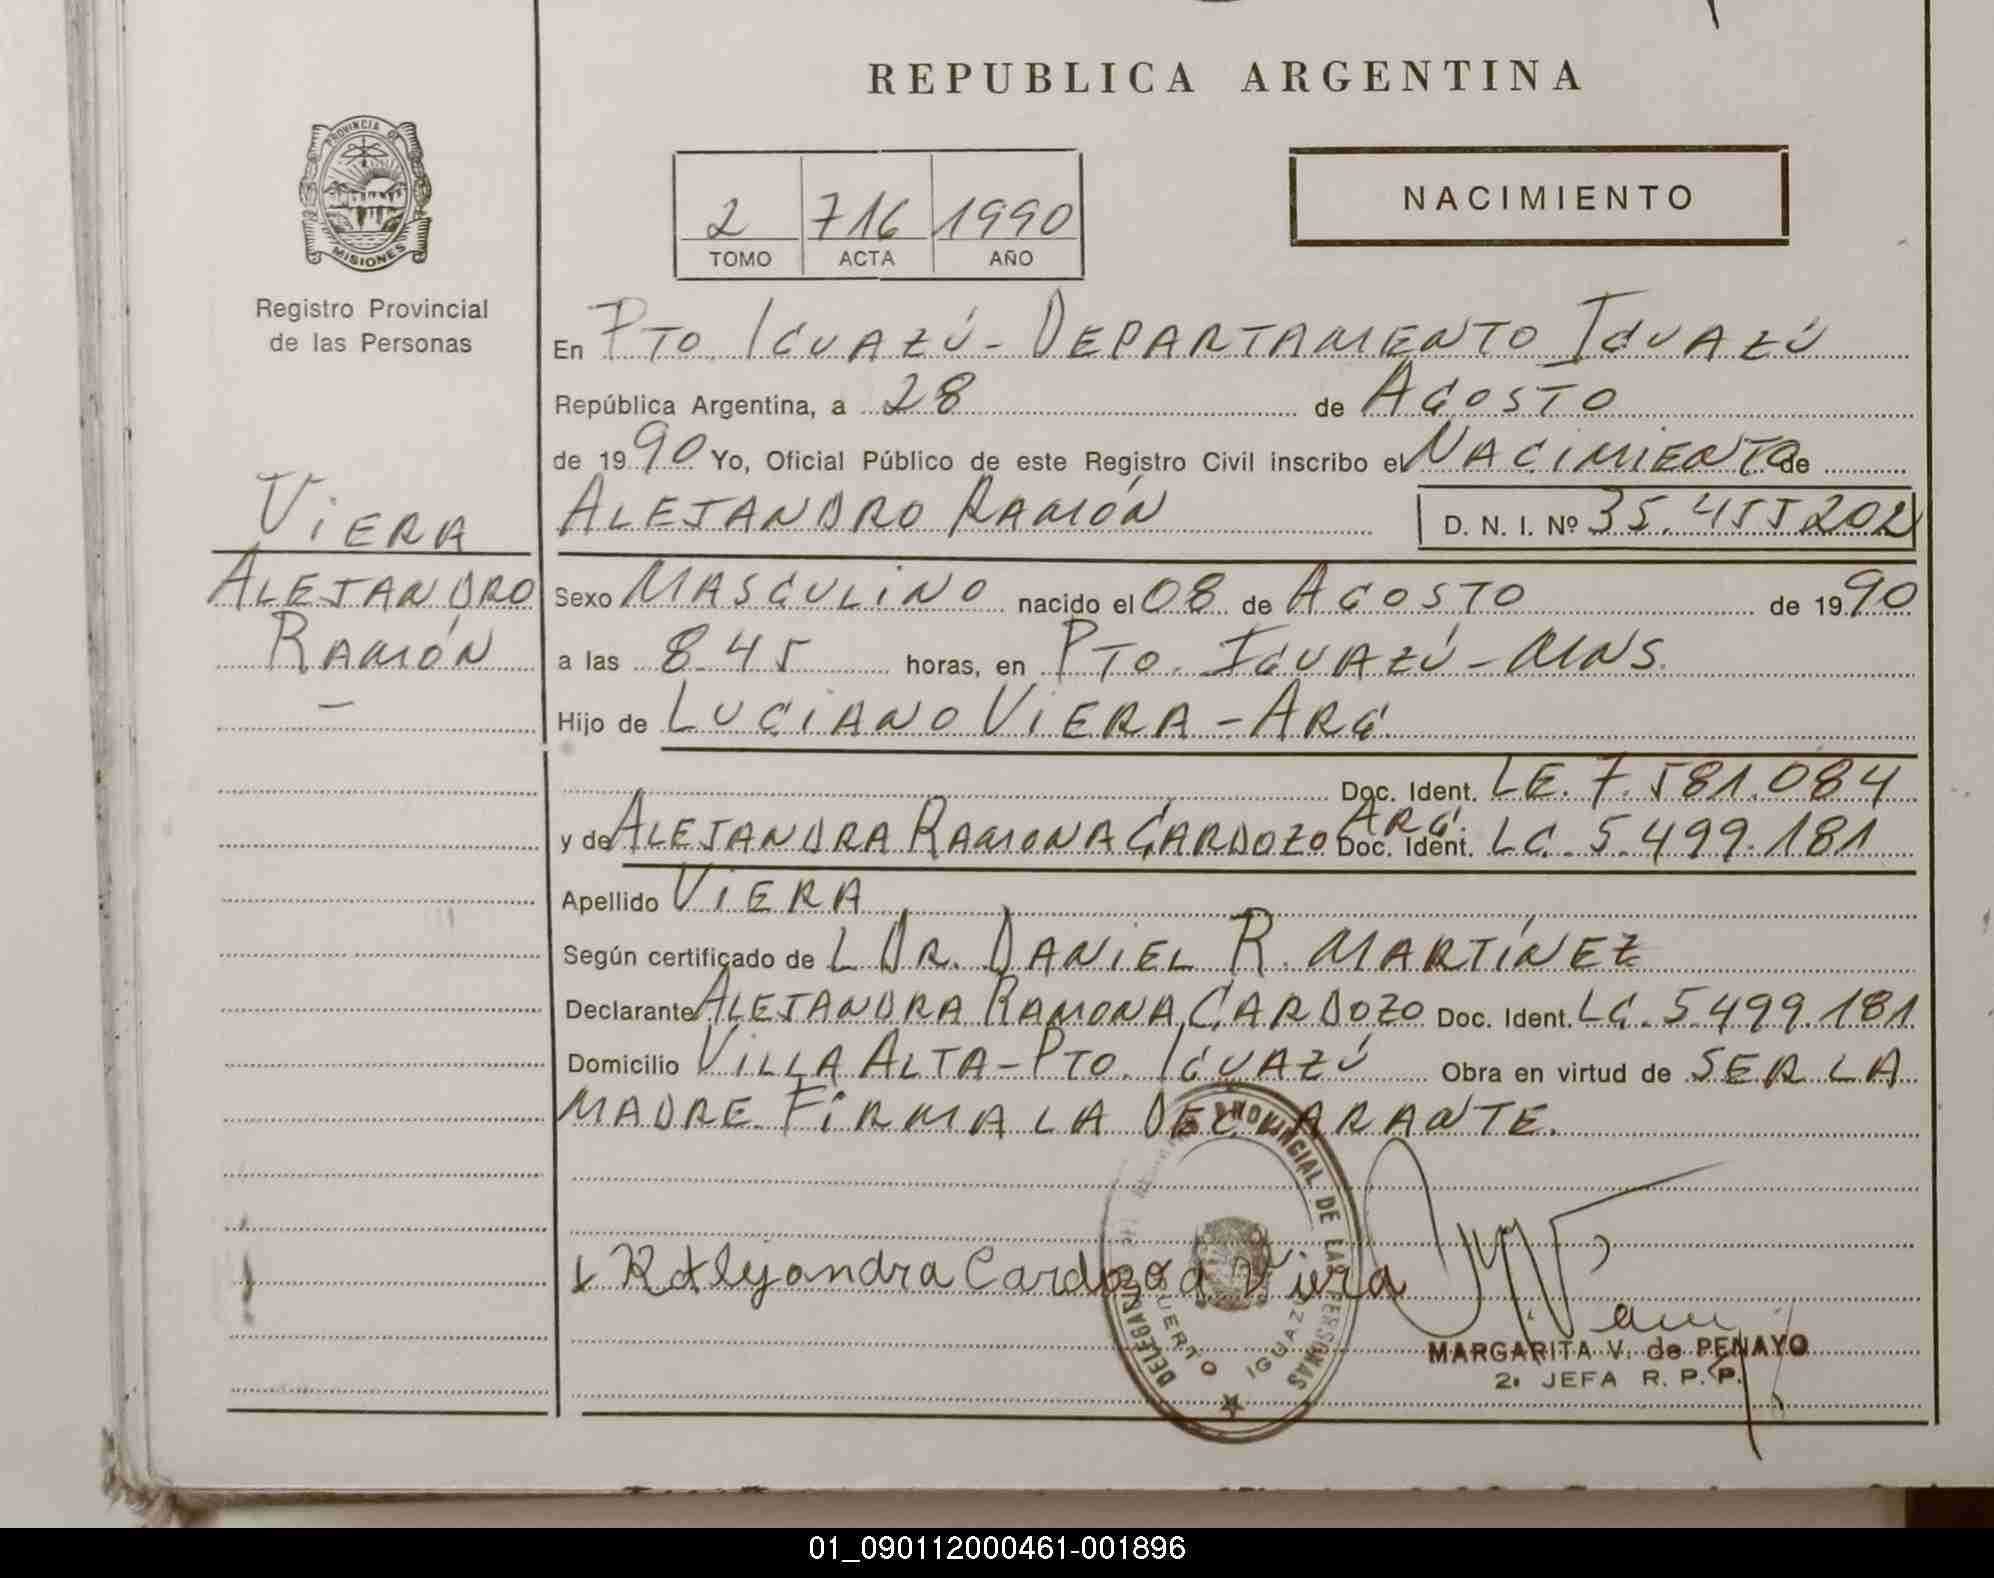 REPUBLICA ARGENTINA
PROVINCIA DE
MISIONES
NACIMIENTO
2 716 1990
TOMO ACTA AÑO
Registro Provincial
de las Personas
En PTO. IGUAZÚ - DEPARTAMENTO IGUAZÚ
República Argentina, a 28 de AGOSTO
de 1990 Yo, Oficial Público de este Registro Civil inscribo el NACIMIENTO de
VIERA
ALEJANDRO RAMÓN D. N. I. Nº 35.455202
ALEJANDRO
RAMÓN
—
Sexo MASCULINO nacido el 08 de AGOSTO de 1990
a las 8 45 horas, en PTO. IGUAZÚ - MNS.
Hijo de LUCIANO VIERA - ARG.
Doc. Ident. LE. 7.581.084
ARG.
y de ALEJANDRA RAMONA CARDOZO Doc. Ident. LC. 5.499.181
Apellido VIERA
Según certificado de L DR. DANIEL R. MARTÍNEZ
Declarante ALEJANDRA RAMONA CARDOZO Doc. Ident. LC. 5.499.181
Domicilio VILLA ALTA - PTO. IGUAZÚ Obra en virtud de SER LA
MADRE FIRMA LA DECLARANTE.
R Alejandra Cardozo d Viera
PROVINCIAL DE LAS PERSONAS
PUERTO IGUAZU
MARGARITA V. de PENAYO
2. JEFA R. P. P.
01_090112000461-001896